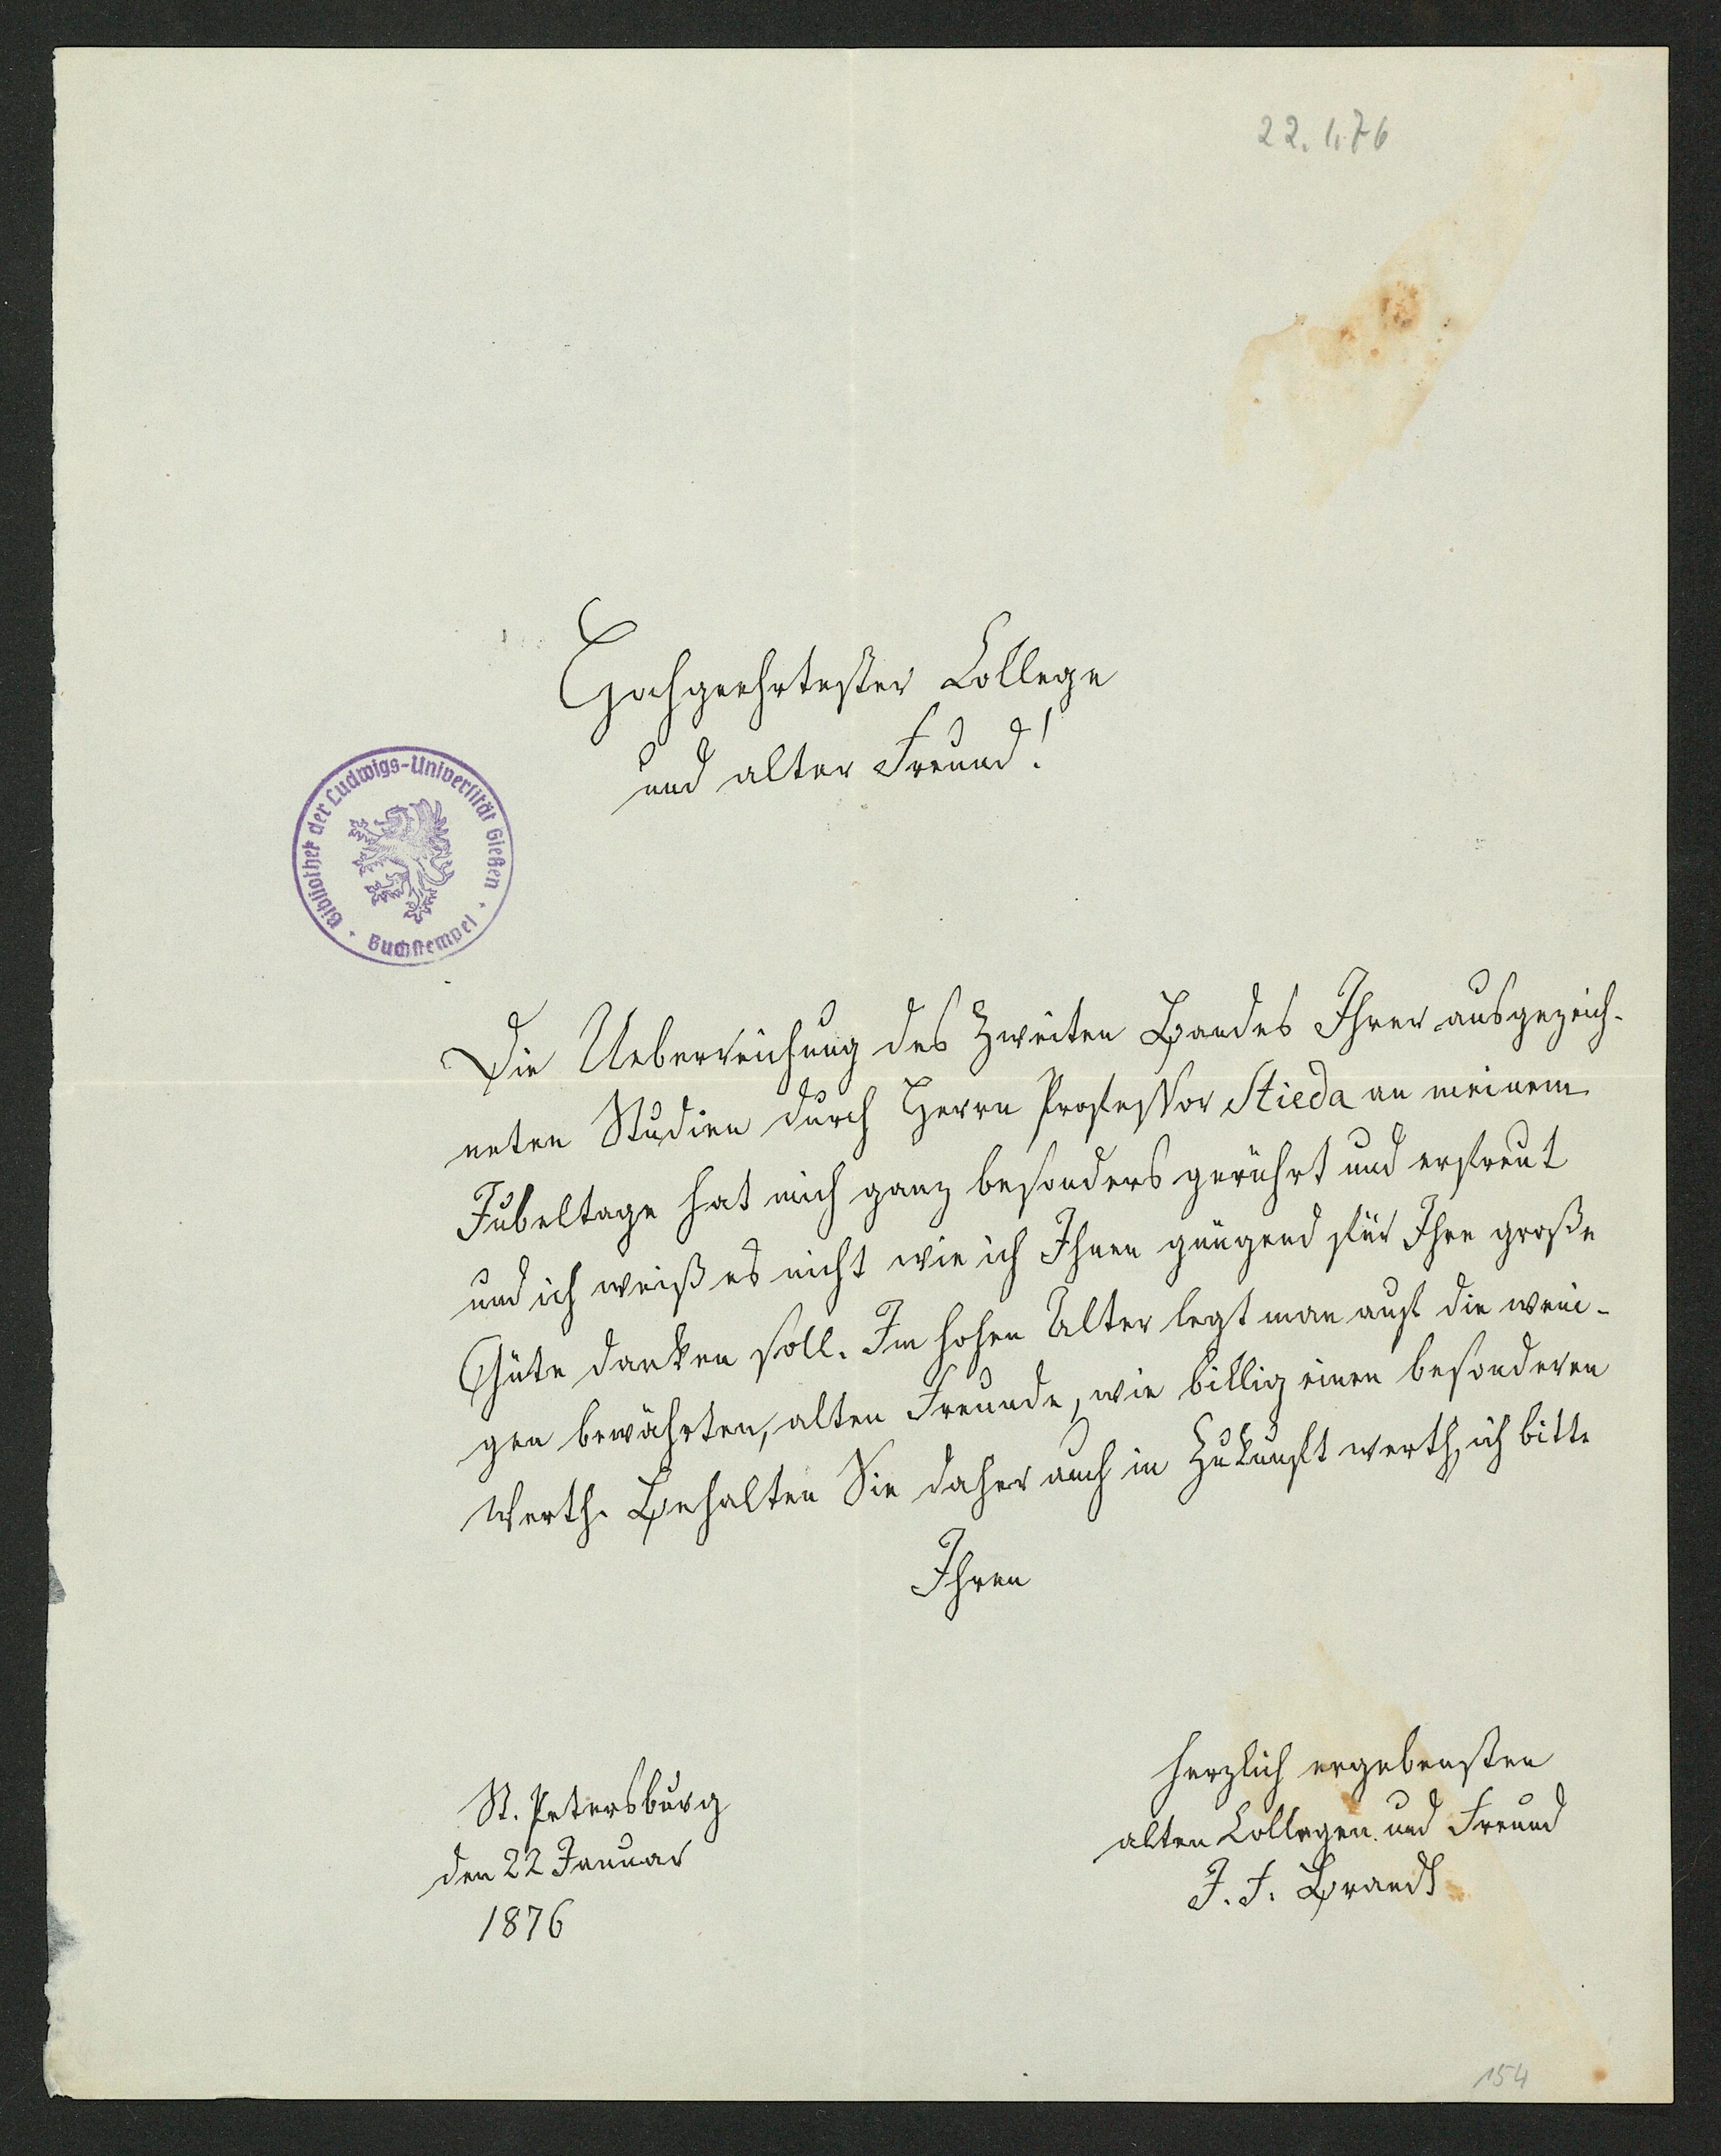 22.1.76
Hochgeehrtester College
und alter Freund!
Bibliothek der Ludwigs-Universität Gießen
· Buchstempel ·
Die Ueberreichung des Zweiten Bandes Ihrer ausgezeich-
neten Studien durch Herrn Professor Stieda an meinem
Jubeltage hat mich ganz besonders gerührt und erfreut
und ich weiß es nicht wie ich Ihnen gnügend für Ihre große
Güte danken soll. Im hohen Alter legt man auf die weni-
gen bewährten, alten Freunde, wie billig einen besonderen
Werth. Behalten Sie daher auch in Zukunft werth, ich bitte
Ihren
herzlich ergebensten
alten Collegen und Freund
J. F. Brandt
St. Petersburg
den 22 Januar
1876
154